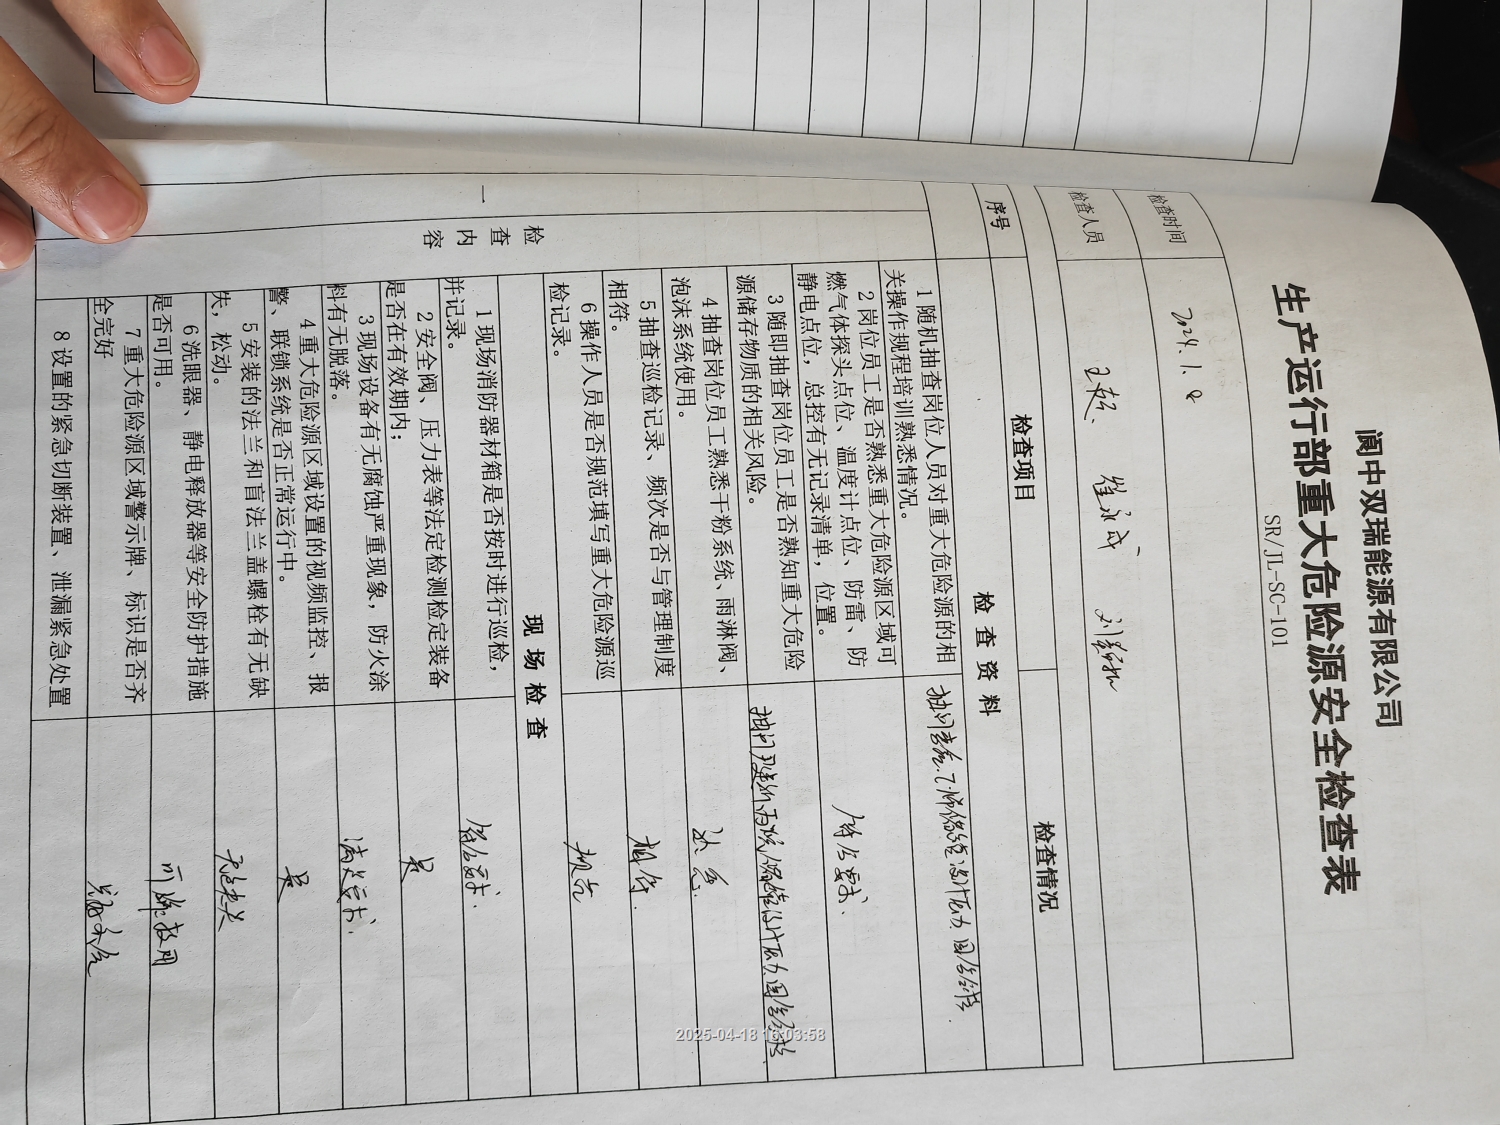 阆中双瑞能源有限公司
生产运行部重大危险源安全检查表
SR/JL-SC-101
检查时间 2024.1.8
检查人员
序号 检查项目 检查情况
检查资料
一
检查内容
1 随机抽查岗位人员对重大危险源的相
关操作规程培训熟悉情况。
2 岗位员工是否熟悉重大危险源区域可
燃气体探头点位、温度计点位、防雷、防
静电点位，总控有无记录清单，位置。
符合要求.
3 随即抽查岗位员工是否熟知重大危险
源储存物质的相关风险。
4 抽查岗位员工熟悉干粉系统、雨淋阀、
泡沫系统使用。
熟悉.
5 抽查巡检记录、频次是否与管理制度
相符。
相符.
6 操作人员是否规范填写重大危险源巡
检记录。
规范
现场检查
1 现场消防器材箱是否按时进行巡检，
并记录。
符合要求.
2 安全阀、压力表等法定检测检定装备
是否在有效期内；
是
3 现场设备有无腐蚀严重现象，防火涂
料有无脱落。
满足要求.
4 重大危险源区域设置的视频监控、报
警、联锁系统是否正常运行中。
是
5 安装的法兰和盲法兰盖螺栓有无缺
失，松动。
无缺失
6 洗眼器、静电释放器等安全防护措施
是否可用。
可靠投用
7 重大危险源区域警示牌、标识是否齐
全完好
8 设置的紧急切断装置、泄漏紧急处置
2025-04-18 16:03:58